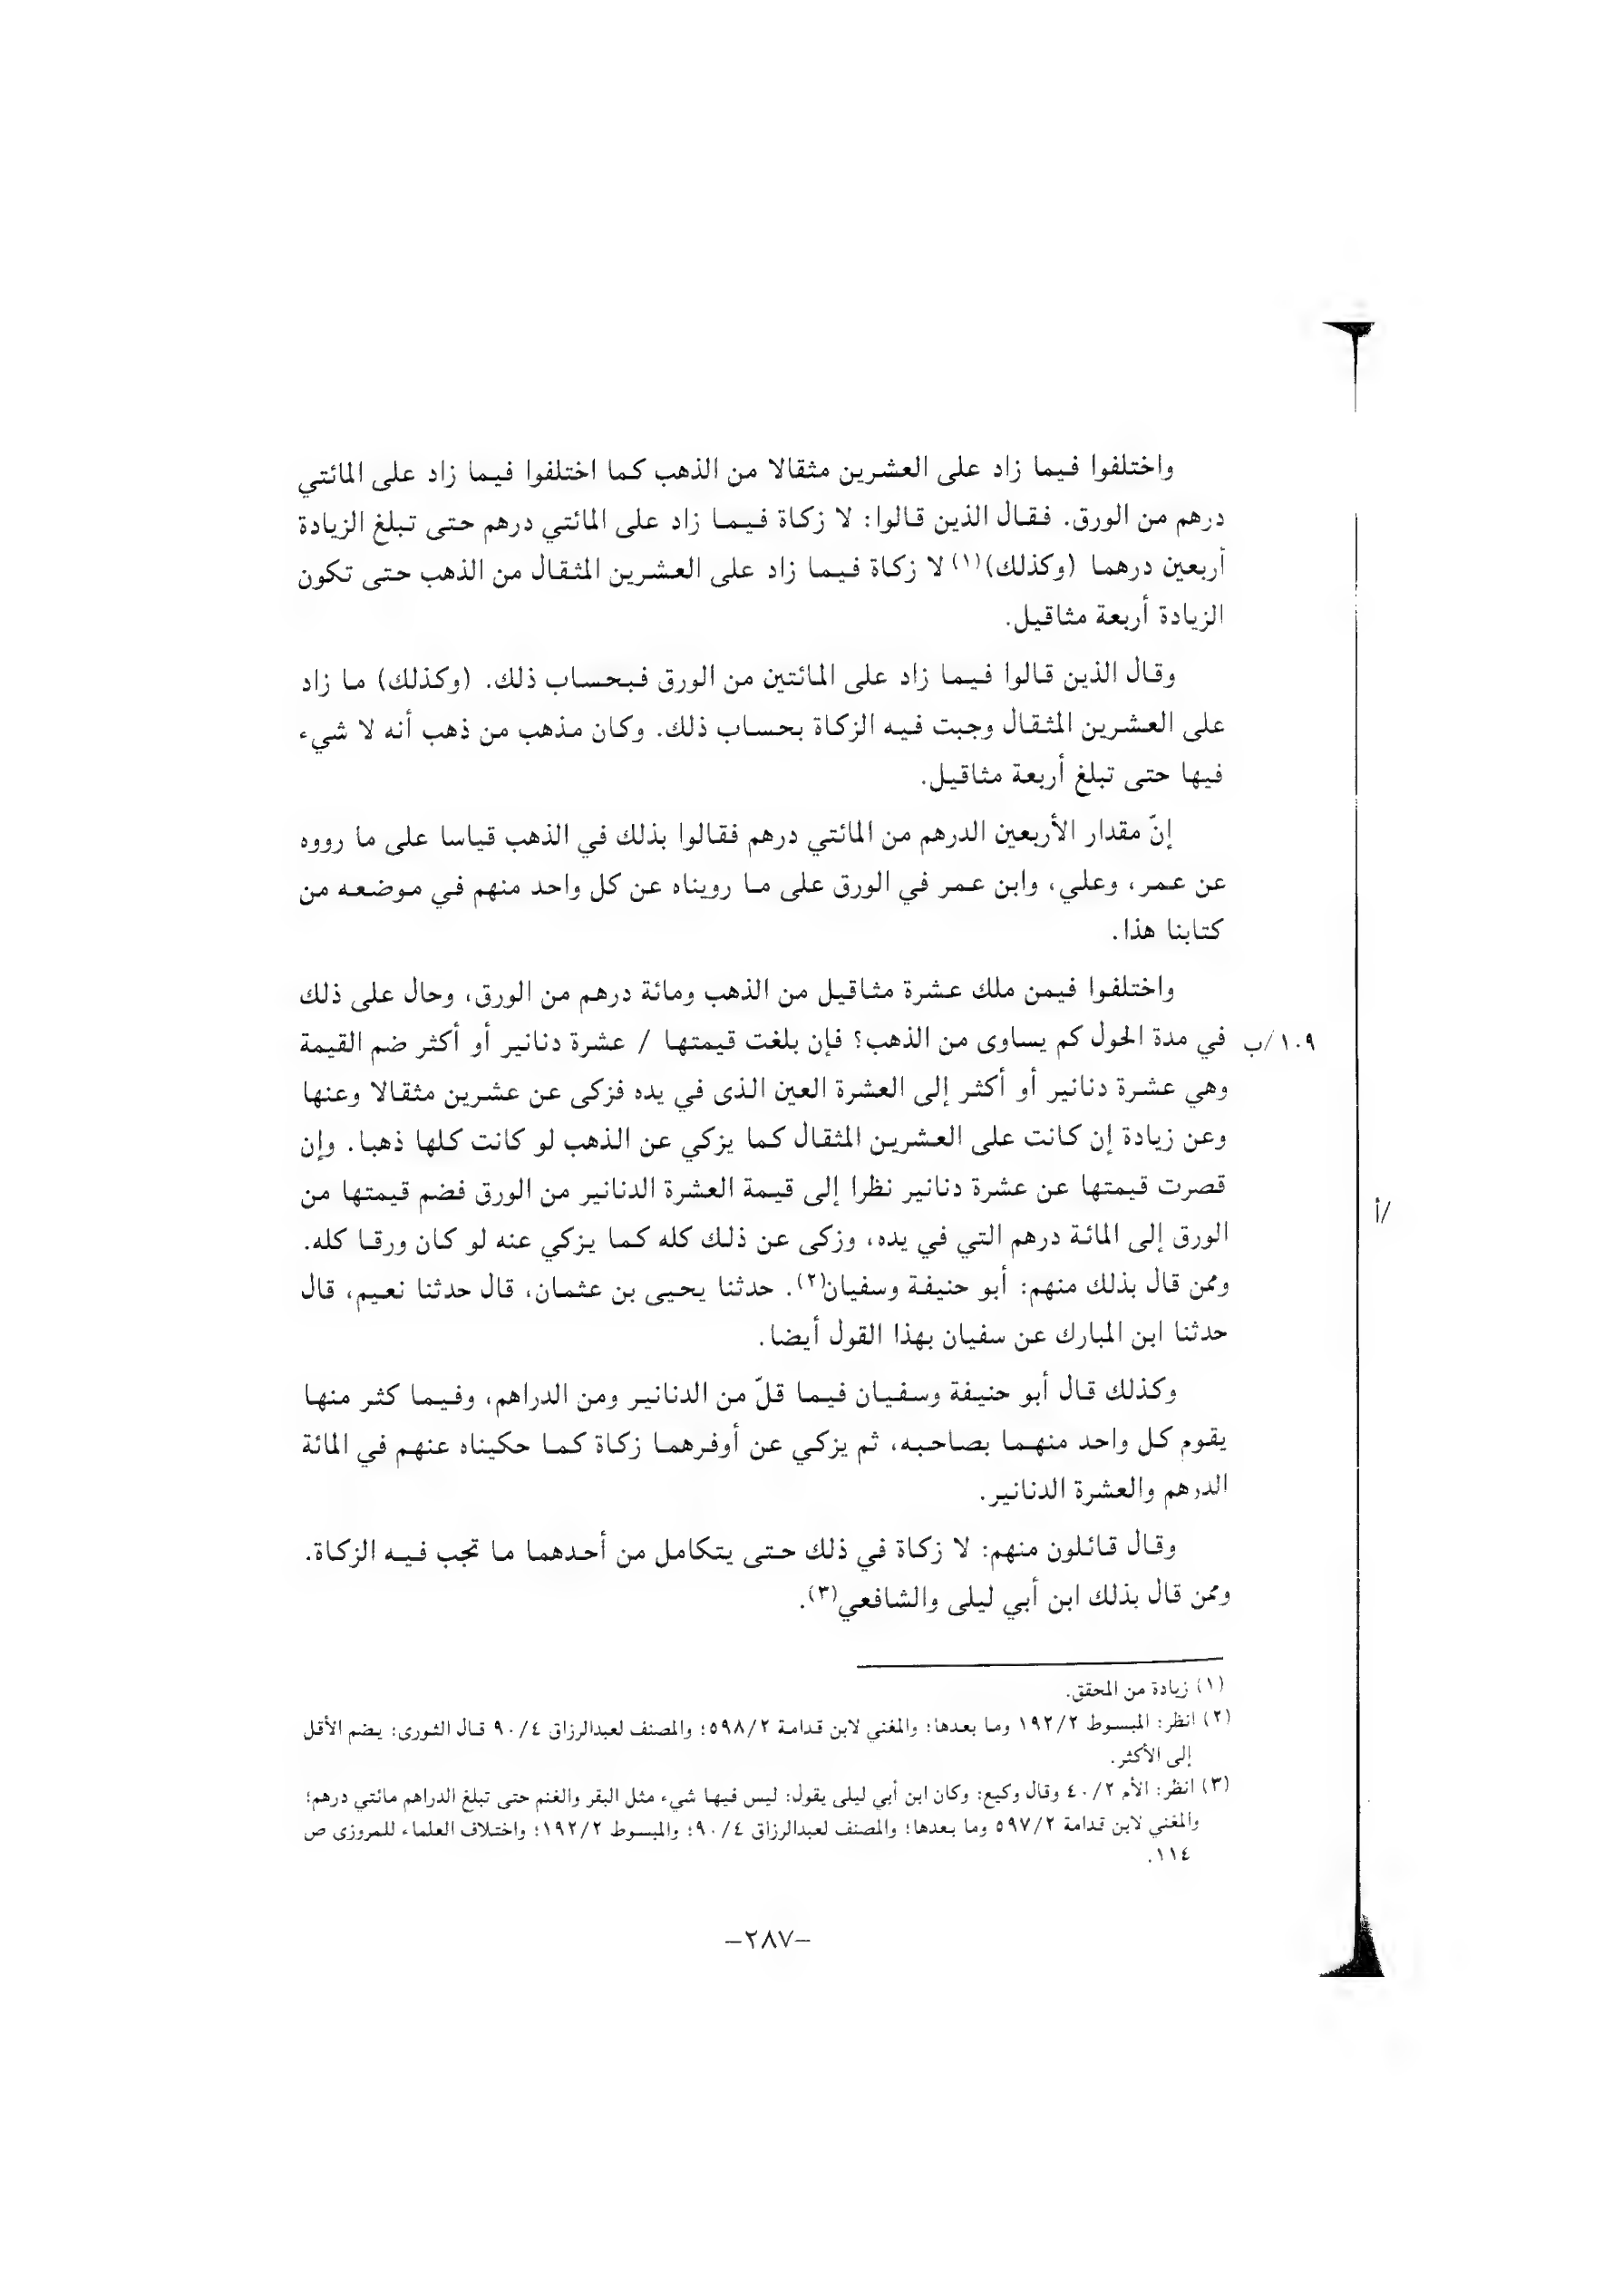 واختلفوا فيما زاد على العشرين مثقالا من الذهب كما اختلفوا فيما زاد على المائتي
درهم من الورق. فقال الذين قالوا: لا زكاة فيما زاد على المائتي درهم حتى تبلغ الزيادة
أربعين درهما (وكذلك)(١) لا زكاة فيما زاد على العشرين المثقال من الذهب حتى تكون
الزيادة أربعة مثاقيل.
وقال الذين قالوا فيما زاد على المائتين من الورق فبحساب ذلك. (وكذلك) ما زاد
على العشرين المثقال وجبت فيه الزكاة بحساب ذلك. وكان مذهب من ذهب أنه لا شيء
فيها حتى تبلغ أربعة مثاقيل.
إنّ مقدار الأربعين الدرهم من المائتي درهم فقالوا بذلك في الذهب قياسا على ما رووه
عن عمر، وعلي، وابن عمر في الورق على ما رويناه عن كل واحد منهم في موضعه من
كتابنا هذا.
واختلفوا فيمن ملك عشرة مثاقيل من الذهب ومائة درهم من الورق، وحال على ذلك
١٠٩/ب في مدة الحول كم يساوى من الذهب؟ فإن بلغت قيمتها / عشرة دنانير أو أكثر ضم القيمة
وهي عشرة دنانير أو أكثر إلى العشرة العين الذى في يده فزكى عن عشرين مثقالا وعنها
وعن زيادة إن كانت على العشرين المثقال كما يزكي عن الذهب لو كانت كلها ذهبا. وإن
قصرت قيمتها عن عشرة دنانير نظرا إلى قيمة العشرة الدنانير من الورق فضم قيمتها من
/أ
الورق إلى المائة درهم التي في يده، وزكى عن ذلك كله كما يزكي عنه لو كان ورقا كله.
وممن قال بذلك منهم: أبو حنيفة وسفيان(٢). حدثنا يحيى بن عثمان، قال حدثنا نعيم، قال
حدثنا ابن المبارك عن سفيان بهذا القول أيضا.
وكذلك قال أبو حنيفة وسفيان فيما قلّ من الدنانير ومن الدراهم، وفيما كثر منها
يقوم كل واحد منهما بصاحبه، ثم يزكي عن أوفرهما زكاة كما حكيناه عنهم في المائة
الدرهم والعشرة الدنانير.
وقال قائلون منهم: لا زكاة في ذلك حتى يتكامل من أحدهما ما تجب فيه الزكاة.
وممن قال بذلك ابن أبي ليلى والشافعي(٣).
(١) زيادة من المحقق.
(٢) انظر: المبسوط ١٩٢/٢ وما بعدها؛ والمغني لابن قدامة ٥٩٨/٢؛ والمصنف لعبدالرزاق ٩٠/٤ قال الثورى: يضم الأقل
إلى الأكثر.
(٣) انظر: الأم ٤٠/٢ وقال وكيع: وكان ابن أبي ليلى يقول: ليس فيها شيء مثل البقر والغنم حتى تبلغ الدراهم مائتي درهم؛
والمغني لابن قدامة ٥٩٧/٢ وما بعدها؛ والمصنف لعبدالرزاق ٩٠/٤؛ والمبسوط ١٩٢/٢؛ واختلاف العلماء للمروزى ص
١١٤.
–٢٨٧–